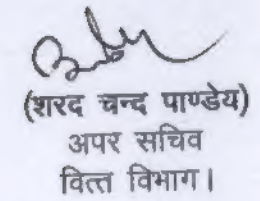 (शरद चन्द पाण्डेय)
अपर सचिव
वित्त विभाग।